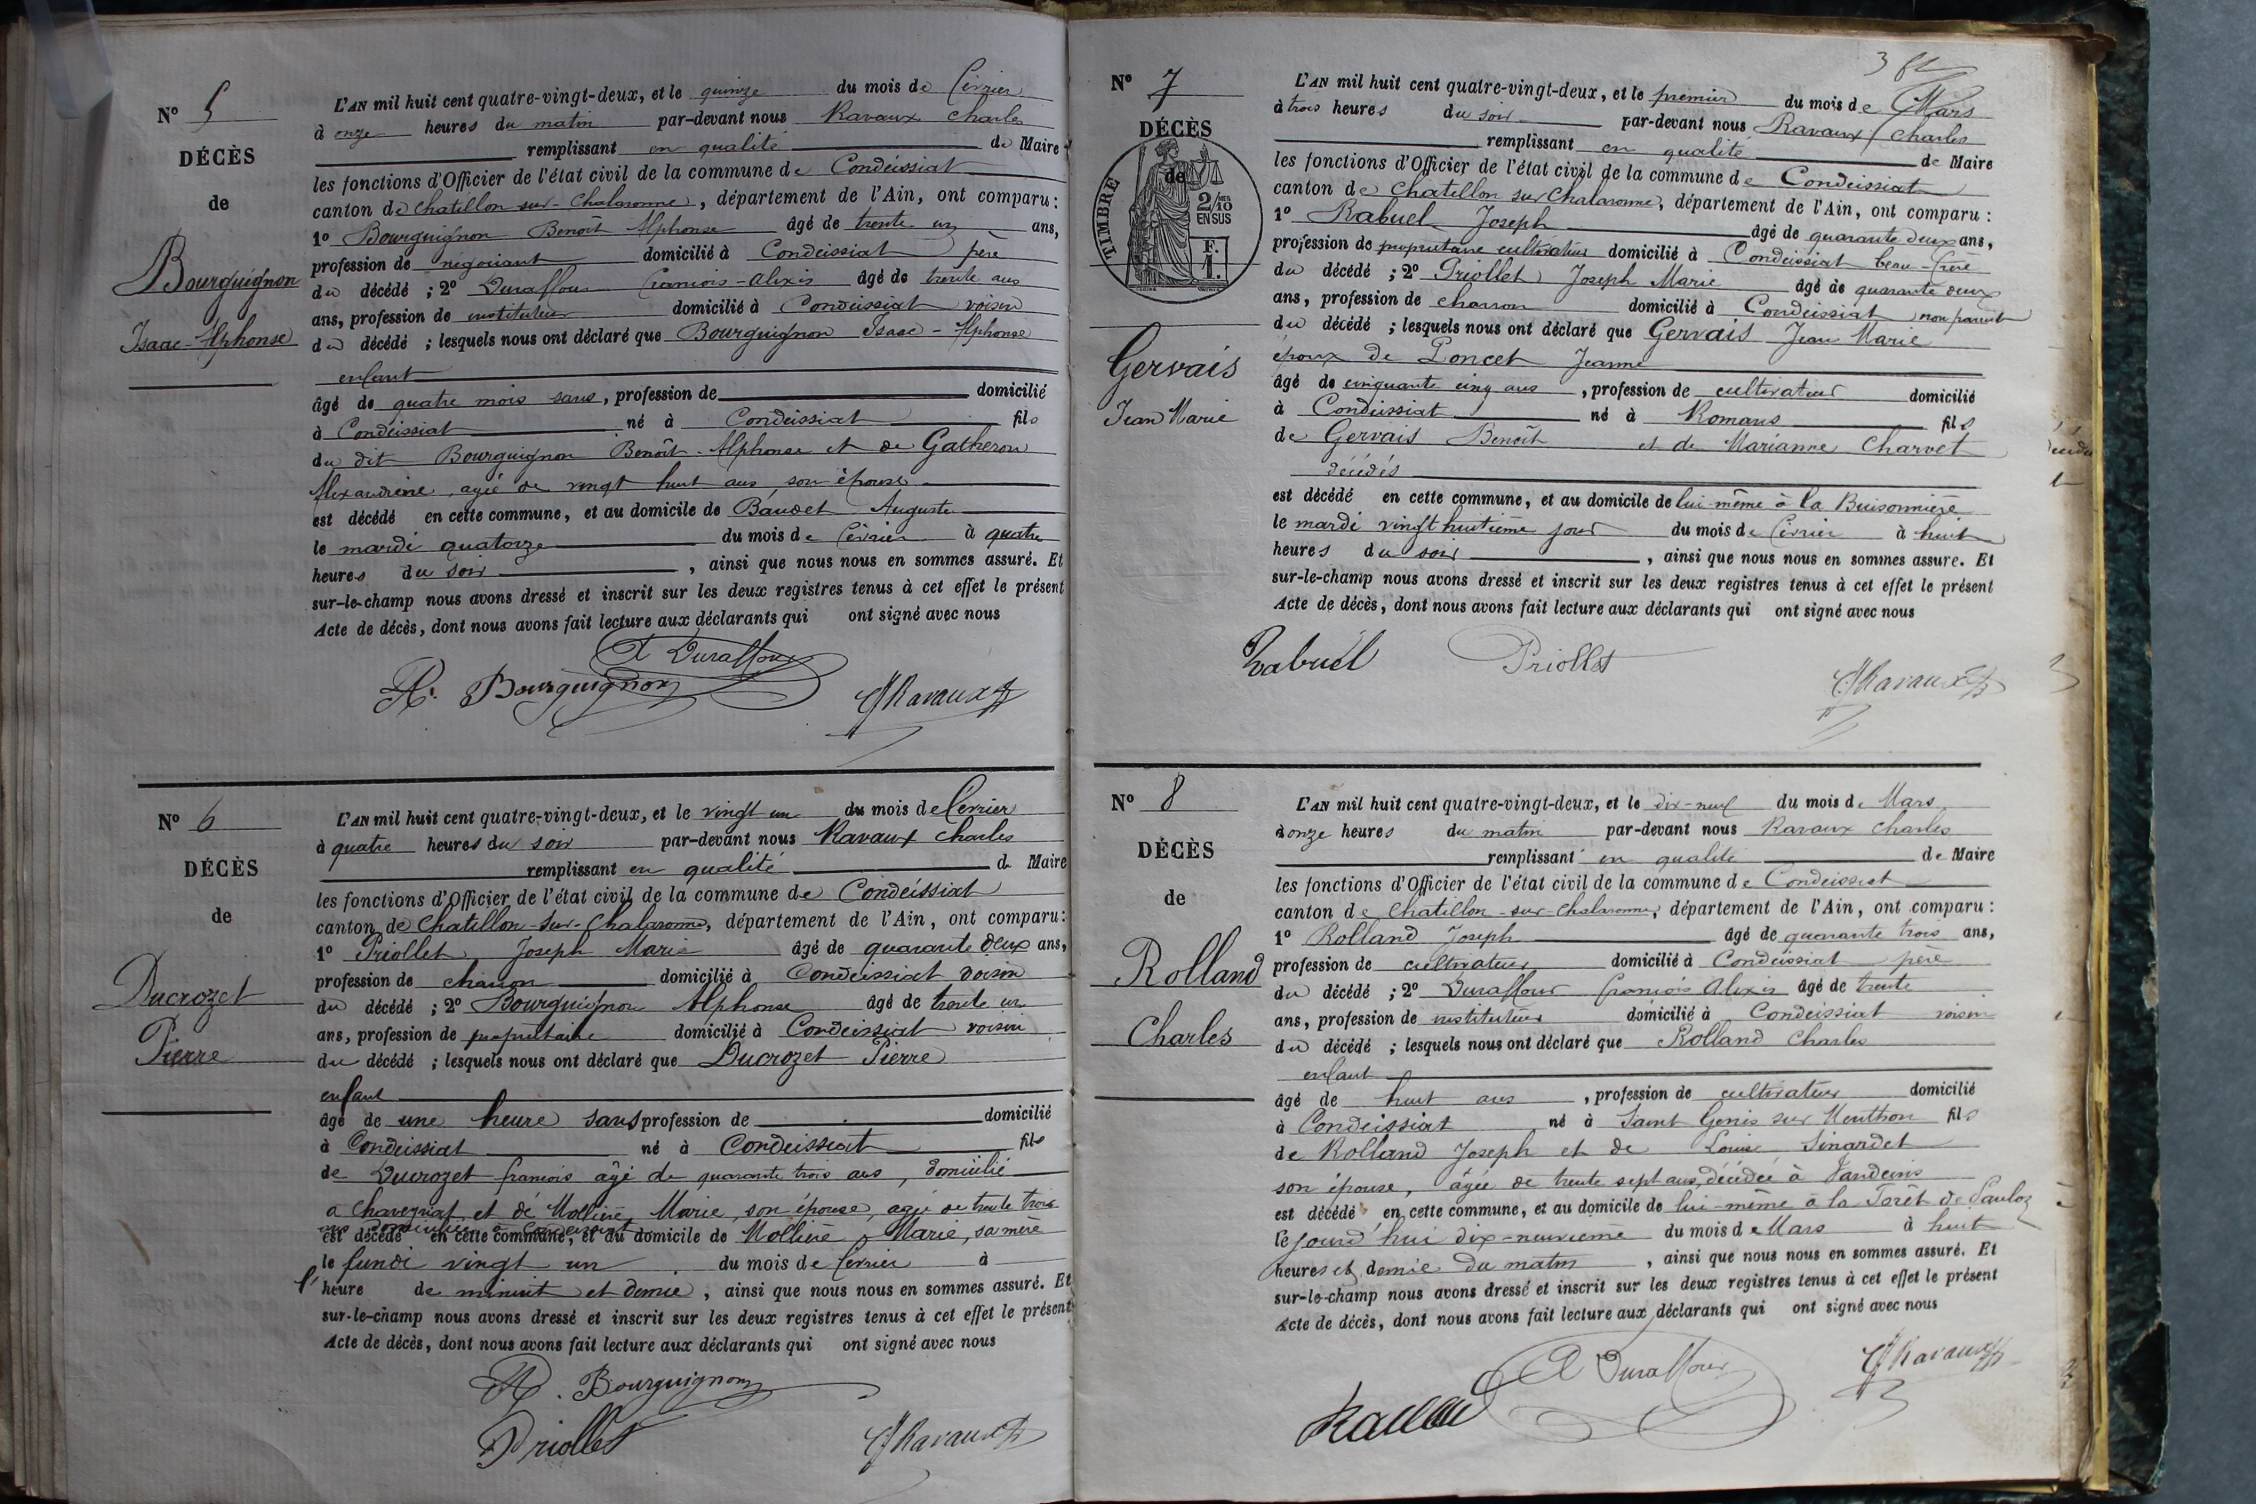 N° 5
DÉCÈS
de
Bourguignon
Isaac-Alphonse
L'AN mil huit cent quatre-vingt-deux, et le quinze du mois de février
à onze heures du matin par-devant nous Ravaux Charles
remplissant en qualité de Maire
les fonctions d'Officier de l'état civil de la commune de Condeissiat
canton de Chatillon-sur-Chalaronne, département de l'Ain, ont comparu :
1° Bourguignon Benoît Alphonse âgé de trente un ans,
profession de négociant domicilié à Condeissiat père
du décédé ; 2° Duraffour François-Alexis âgé de trente ans
ans, profession de instituteur domicilié à Condeissiat voisin
du décédé ; lesquels nous ont déclaré que Bourguignon Isaac-Alphonse
enfant
âgé de quatre mois sans, profession de domicilié
à Condeissiat né à Condeissiat fils
du dit Bourguignon Benoît-Alphonse et de Gatheron
Alexandrine, agée de vingt huit ans, son épouse
est décédé en cette commune, et au domicile de Baudet Auguste
le mardi quatorze du mois de février à quatre
heures du soir, ainsi que nous nous en sommes assuré. Et
sur-le-champ nous avons dressé et inscrit sur les deux registres tenus à cet effet le présent
Acte de décès, dont nous avons fait lecture aux déclarants qui ont signé avec nous
A Duraffour
A. Bourguignon
Ch Ravaux
N° 6
DÉCÈS
de
Ducrozet
Pierre
L'AN mil huit cent quatre-vingt-deux, et le vingt un du mois de février
à quatre heures du soir par-devant nous Ravaux Charles
remplissant en qualité de Maire
les fonctions d'Officier de l'état civil de la commune de Condeissiat
canton de Chatillon-sur-Chalaronne, département de l'Ain, ont comparu :
1° Priollet Joseph Marie âgé de quarante deux ans,
profession de charron domicilié à Condeissiat voisin
du décédé ; 2° Bourguignon Alphonse âgé de trente un
ans, profession de propriétaire domicilié à Condeissiat voisin
du décédé ; lesquels nous ont déclaré que Ducrozet Pierre
enfant
âgé de une heure sans profession de domicilié
à Condeissiat né à Condeissiat fils
de Ducrozet françois âgé de quarante trois ans, domicilié
a Chaveyriat et de Mollière Marie, son épouse, agée de trente trois
ans domiciliée à Condeissiat
est décédé en cette commune, et au domicile de Mollière Marie, sa mère
le lundi vingt un du mois de février à
l'heure de minuit et demie, ainsi que nous nous en sommes assuré. Et
sur-le-champ nous avons dressé et inscrit sur les deux registres tenus à cet effet le présent
Acte de décès, dont nous avons fait lecture aux déclarants qui ont signé avec nous
A. Bourguignon
Priollet
Ch Ravaux
N° 7
DÉCÈS
de
TIMBRE
2/10 EN SUS
F. 1.
Gervais
Jean Marie
L'AN mil huit cent quatre-vingt-deux, et le premier du mois de Mars
à trois heures du soir par-devant nous Ravaux Charles
remplissant en qualité de Maire
les fonctions d'Officier de l'état civil de la commune de Condeissiat
canton de Chatillon sur Chalaronne, département de l'Ain, ont comparu :
1° Rabuel Joseph âgé de quarante deux ans,
profession de propriétaire cultivateur domicilié à Condeissiat beau-frère
du décédé ; 2° Priollet Joseph Marie âgé de quarante deux
ans, profession de charron domicilié à Condeissiat non parent
du décédé ; lesquels nous ont déclaré que Gervais Jean Marie
époux de Poncet Jeanne
âgé de cinquante cinq ans, profession de cultivateur domicilié
à Condeissiat né à Romans fils
de Gervais Benoît et de Marianne Charvet
décédés
est décédé en cette commune, et au domicile de lui-même à la Buisonnière
le mardi vingt huitième jour du mois de février à huit
heures du soir, ainsi que nous nous en sommes assuré. Et
sur-le-champ nous avons dressé et inscrit sur les deux registres tenus à cet effet le présent
Acte de décès, dont nous avons fait lecture aux déclarants qui ont signé avec nous
Rabuel
Priollet
Ch Ravaux
N° 8
DÉCÈS
de
Rolland
Charles
L'AN mil huit cent quatre-vingt-deux, et le dix-neuf du mois de Mars
à onze heures du matin par-devant nous Ravaux Charles
remplissant en qualité de Maire
les fonctions d'Officier de l'état civil de la commune de Condeissiat
canton de Chatillon-sur-Chalaronne, département de l'Ain, ont comparu :
1° Rolland Joseph âgé de quarante trois ans,
profession de cultivateur domicilié à Condeissiat père
du décédé ; 2° Duraffour François Alexis âgé de trente
ans, profession de instituteur domicilié à Condeissiat voisin
du décédé ; lesquels nous ont déclaré que Rolland Charles
enfant
âgé de huit ans, profession de cultivateur domicilié
à Condeissiat né à Saint Genis sur Menthon fils
de Rolland Joseph et de Louise Sinardet
son épouse, âgée de trente sept ans, décédée à Vandeins
est décédé en cette commune, et au domicile de lui-même à la Forêt de
le jourd'hui dix-neuvième du mois de Mars à huit
heures et demie du matin, ainsi que nous nous en sommes assuré. Et
sur-le-champ nous avons dressé et inscrit sur les deux registres tenus à cet effet le présent
Acte de décès, dont nous avons fait lecture aux déclarants qui ont signé avec nous
A Duraffour
Ch Ravaux